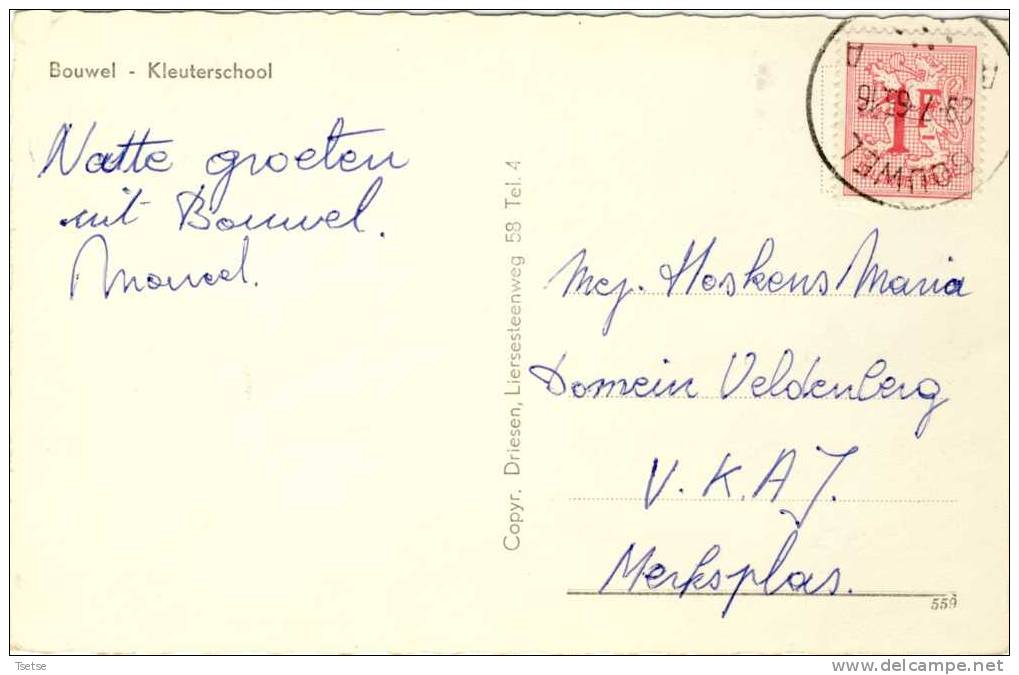 Bouwel - Kleuterschool
Natte groeten
uit Bouwel.
Marcel.
Copyr. Driesen, Liersesteenweg 58 Tel. 4
1F
BOUWEL
Mej. Hoskens Maria
Domein Veldenberg
V.K.A.J.
Merksplas.
559
Tsetse
www.delcampe.net